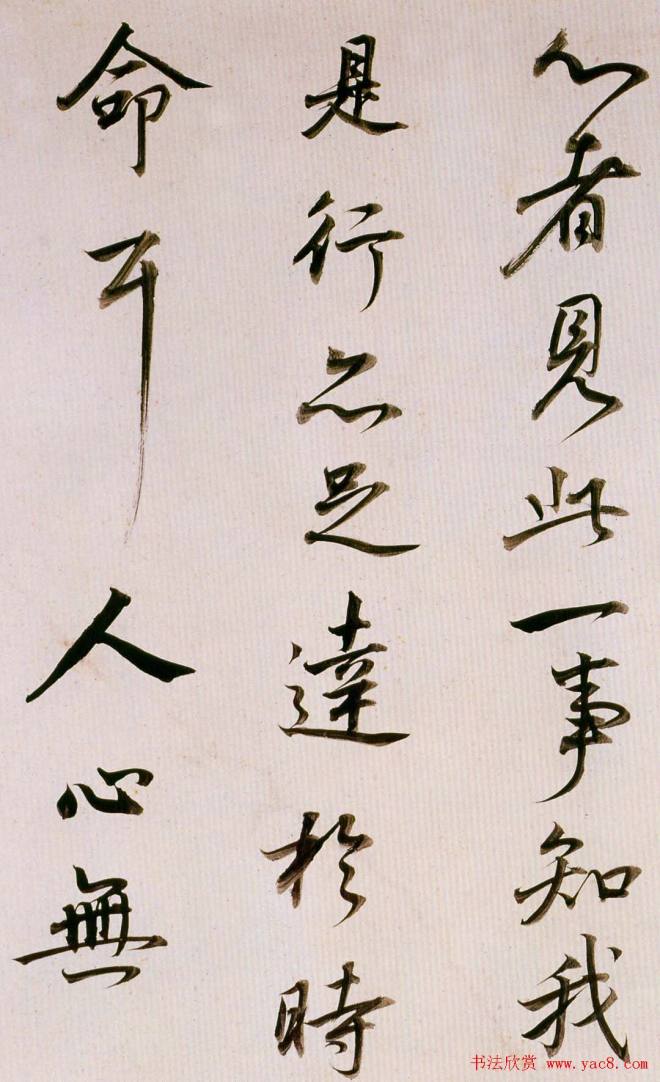 心者見此一事知我
是行亦足達於時
命耳人心無
书法欣赏 www.yac8.com